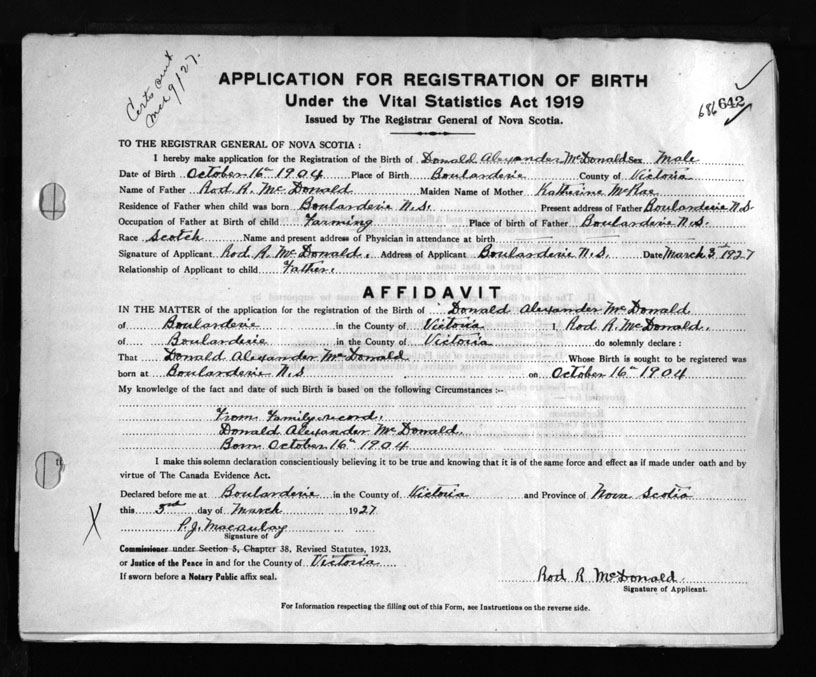 Certs out
Mch 9/27.
APPLICATION FOR REGISTRATION OF BIRTH
Under the Vital Statistics Act 1919
Issued by The Registrar General of Nova Scotia.
686 642
TO THE REGISTRAR GENERAL OF NOVA SCOTIA :
I hereby make application for the Registration of the Birth of Donald Alexander McDonald Sex Male
Date of Birth October 16th 1904 Place of Birth Boularderie County of Victoria
Name of Father Rod R. McDonald Maiden Name of Mother Katherine McRae
Residence of Father when child was born Boularderie N.S. Present address of Father Boularderie N.S.
Occupation of Father at Birth of child Farming Place of birth of Father Boularderie N.S.
Race Scotch Name and present address of Physician in attendance at birth
Signature of Applicant Rod R. McDonald. Address of Applicant Boularderie N.S. Date March 3rd 1927
Relationship of Applicant to child Father.
AFFIDAVIT
IN THE MATTER of the application for the registration of the Birth of Donald Alexander McDonald
of Boularderie in the County of Victoria I, Rod R. McDonald.
of Boularderie in the County of Victoria do solemnly declare :
That Donald Alexander McDonald Whose Birth is sought to be registered was
born at Boularderie N.S on October 16th 1904
My knowledge of the fact and date of such Birth is based on the following Circumstances :--
From Family record.
Donald Alexander McDonald.
Born October 16th 1904
I make this solemn declaration conscientiously believing it to be true and knowing that it is of the same force and effect as if made under oath and by
virtue of The Canada Evidence Act.
Declared before me at Boularderie in the County of Victoria and Province of Nova Scotia
this 3rd day of March 1927
X
P.J. Macaulay
Signature of
Commissioner under Section 5, Chapter 38, Revised Statutes, 1923.
or Justice of the Peace in and for the County of Victoria
If sworn before a Notary Public affix seal.
Rod R McDonald
Signature of Applicant.
For Information respecting the filling out of this Form, see Instructions on the reverse side.